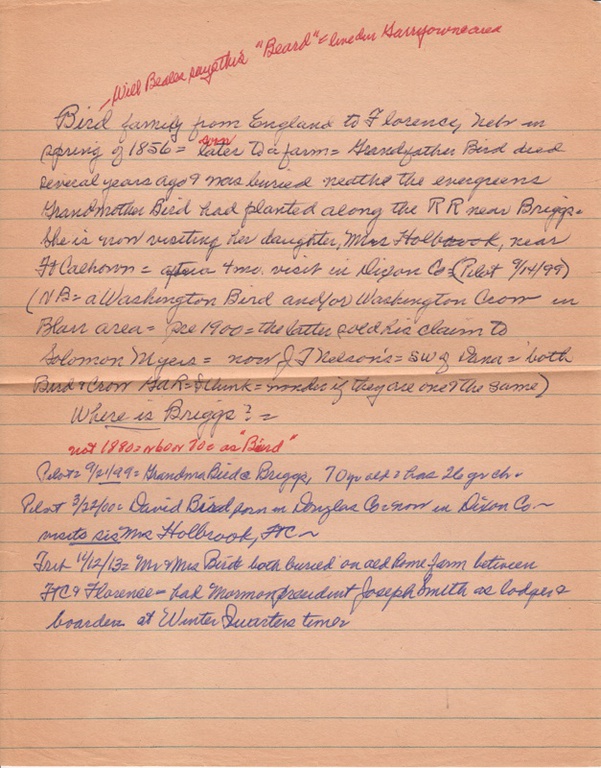 Will Beales says this "Beard" = lived in Garryowne area
Bird family from England to Florence, Nebr in
spring of 1856 = later to a farm = Grandfather Bird died
several years ago & was buried neath the evergreens
Grandmother Bird had planted along the RR near Briggs =
She is now visiting her daughter, Mrs Holbrook, near
Ft Calhoun = after a 4 mo. visit in Dixon Co = (Pilot 9/14/99)
(NB = a Washington Bird and/or Washington Crow in
Blair area = pre 1900 = the latter sold his claim to
Solomon Myers = now J T Nelson's = SW of Dana = both
Bird & Crow GaR = I think = wonder if they are one & the same)
Where is Briggs? =
not 1880 = or 60 or 70 = as "Bird"
Pilot = 9/21/99 = Grandma Bird @ Briggs, 70 yr old = has 26 gr ch =
Pilot 3/22/00 = David Bird born in Douglas Co = now in Dixon Co. ~
visits sis Mrs Holbrook, FtC ~
Trib 11/12/13 = Mr & Mrs Bird both buried on old home farm between
FtC & Florence = had Mormon president Joseph Smith as lodger &
boarder at Winter Quarters time =